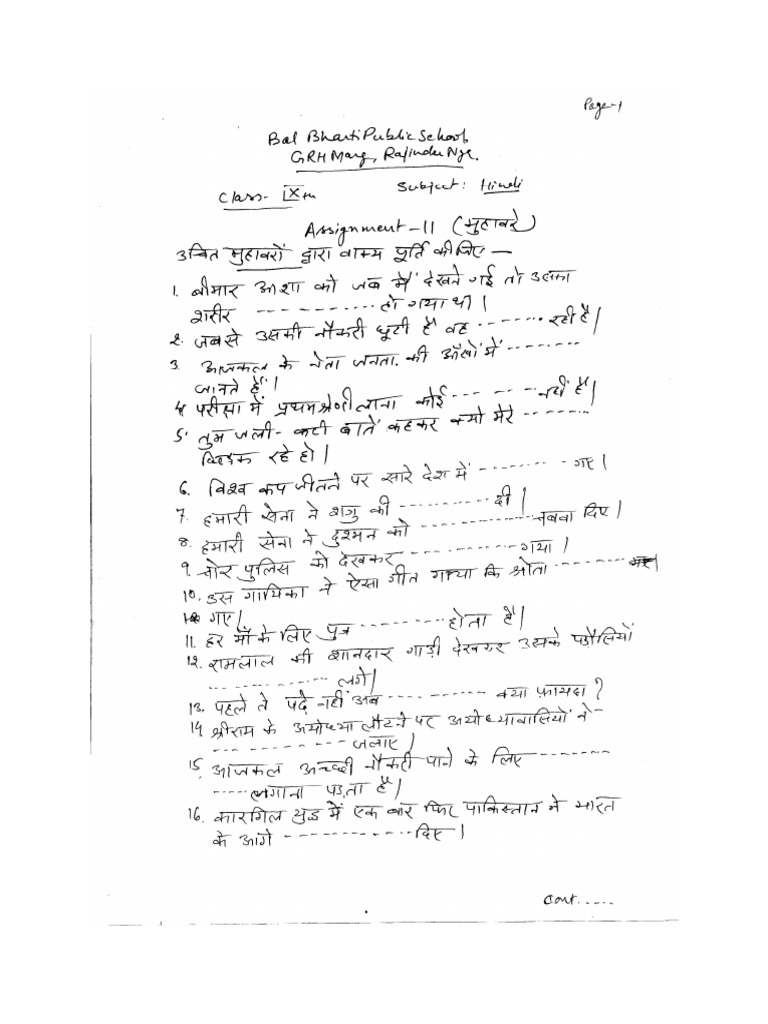 Page-1
Bal Bharti Public School,
GRH Marg, Rajinder Ngr.
Class- IXth Subject: Hindi
Assignment-11 (मुहावरे)
उचित मुहावरों द्वारा वाक्य पूर्ति कीजिए —
1. बीमार आशा को जब मैं देखने गई तो उसका
शरीर ----------- हो गया था।
2. जबसे उसकी नौकरी छूटी है वह -------- रही है।
3. आजकल के नेता जनता की आँखों में --------
जानते हैं।
4. परीक्षा में प्रथम श्रेणी लाना कोई --- -- -- नहीं है।
5. तुम जली-कटी बातें कहकर क्यो मेरे --------
छिड़क रहे हो।
6. विश्व कप जीतने पर सारे देश में --------- गए।
7. हमारी सेना ने शत्रु की ----------- दी।
8. हमारी सेना ने दुश्मन को -------------- चबवा दिए।
9. चोर पुलिस को देखकर ------------ गया।
10. उस गायिका ने ऐसा गीत गाया कि श्रोता --------
गए।
11. हर माँ के लिए पुत्र ---------- होता है।
12. रामलाल की शानदार गाड़ी देखकर उसके पड़ौसियों
------------- लगे।
13. पहले ते पढ़े नहीं अब ----------- क्या फ़ायदा?
14 श्रीराम के अयोध्या लौटने पर अयोध्यावासियों ने --
-------------- जलाए।
15. आजकल अच्छी नौकरी पाने के लिए ----------
-----लगाना पड़ता है।
16. कारगिल युद्ध में एक बार फिर पाकिस्तान ने भारत
के आगे ------------- दिए।
Cont.....